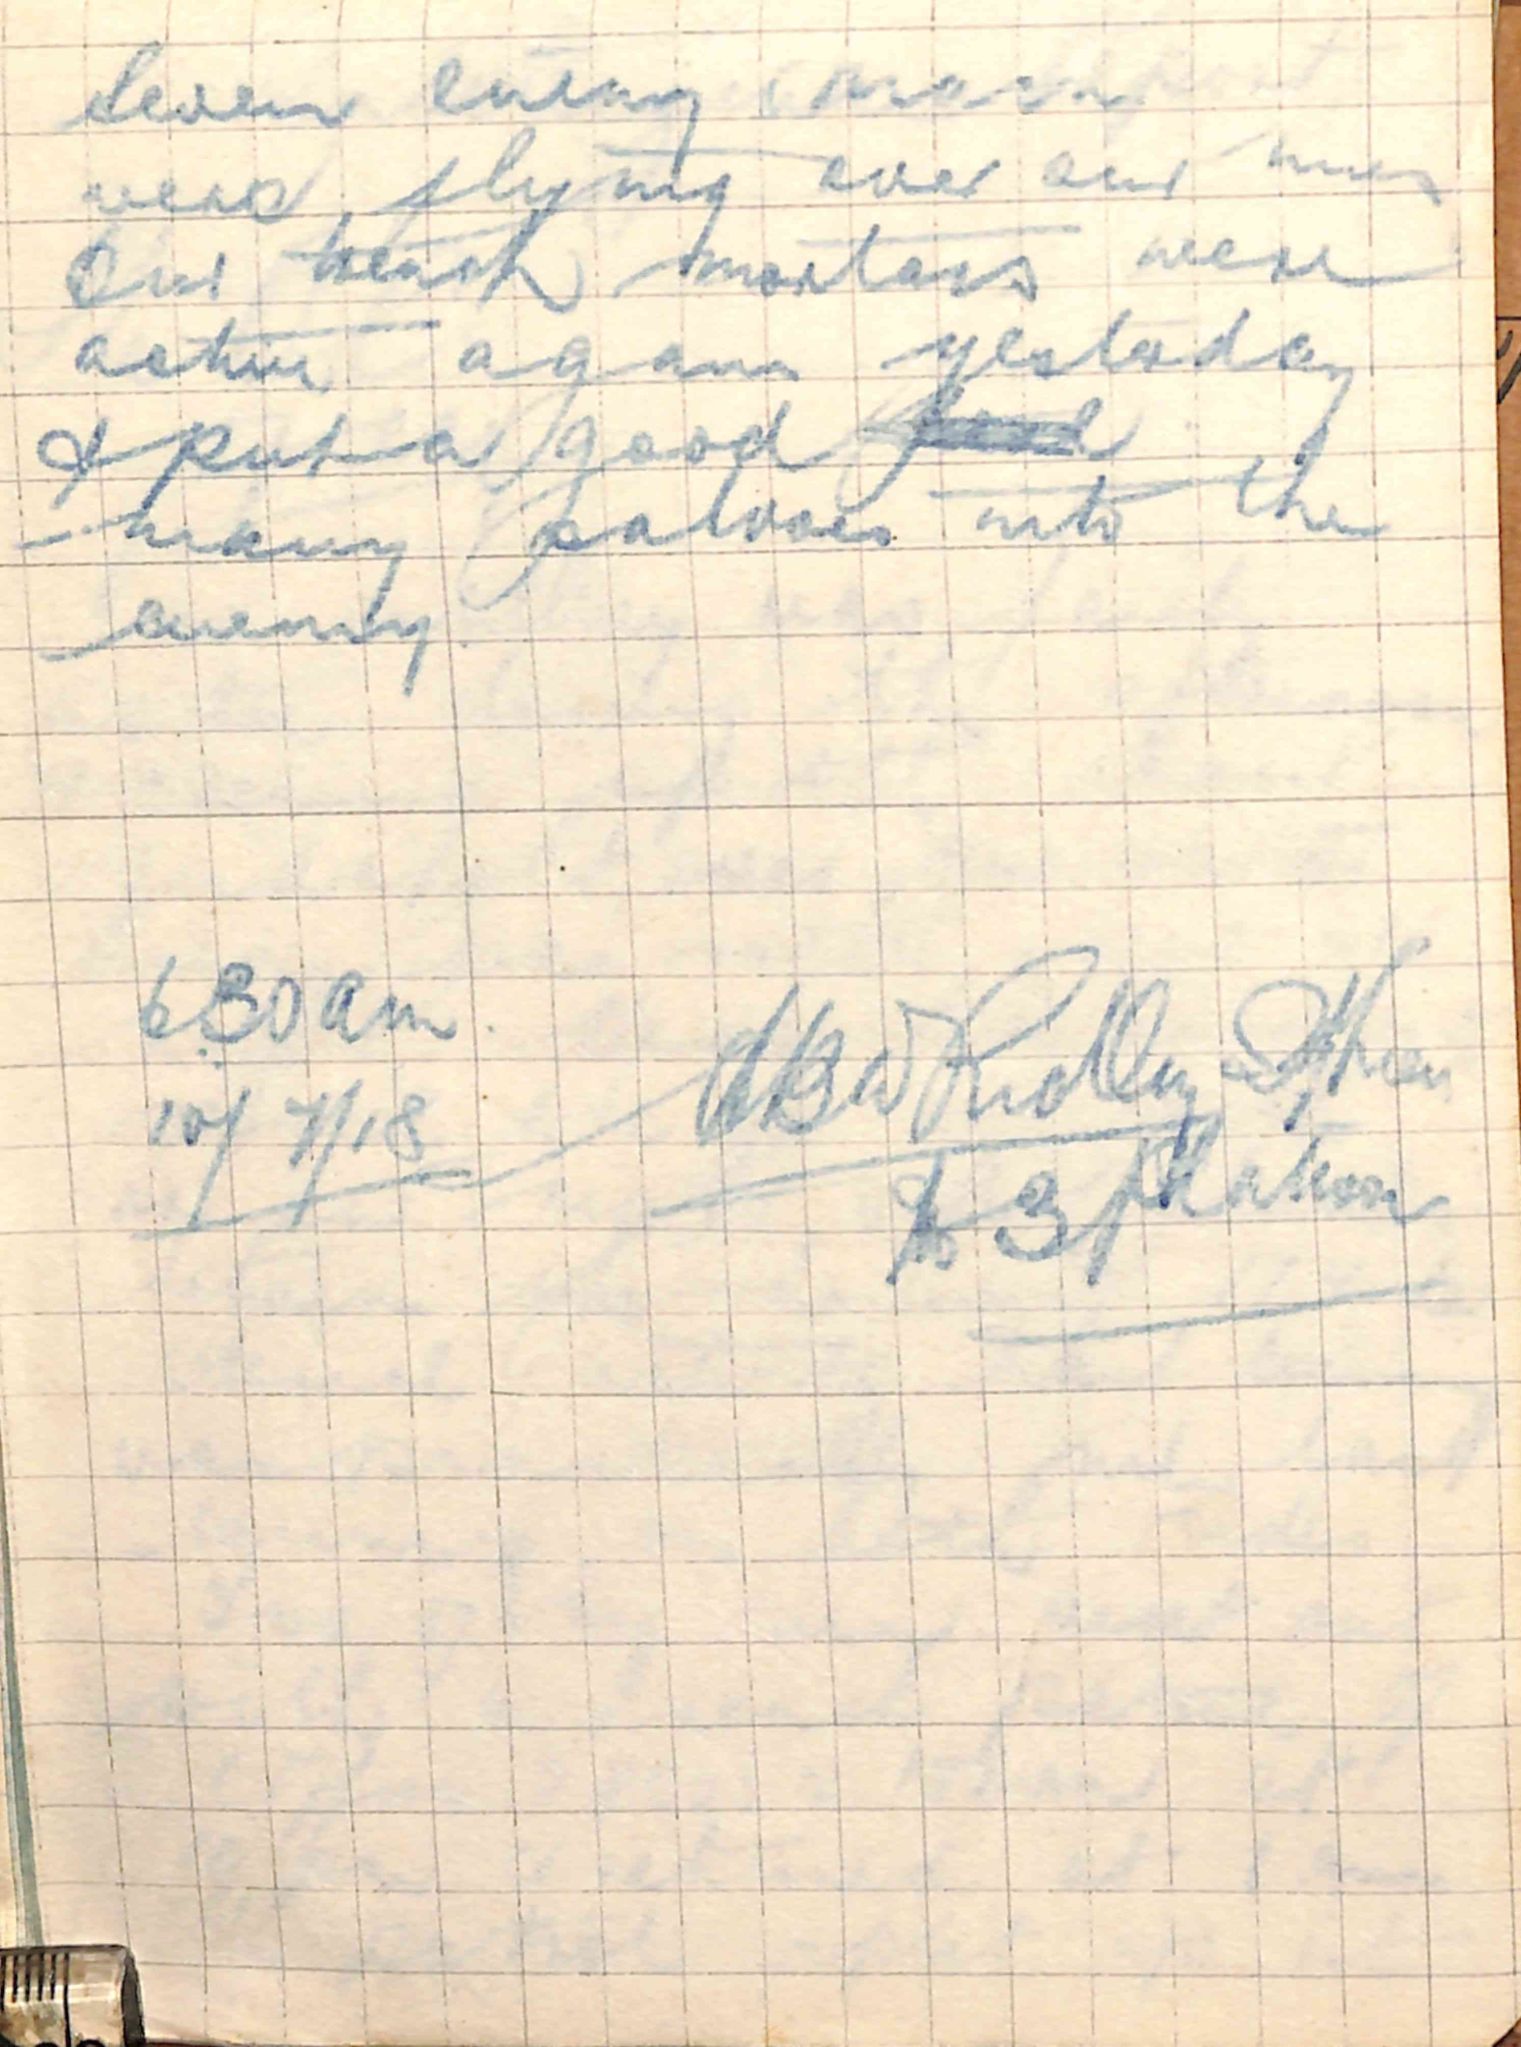 Seven enemy
were flying over our lines
Our trench mortars were
active again yesterday
& put a good
many salvoes into the
enemy.
6.30 am.
10/7/18
Ridley
No 3 Platoon